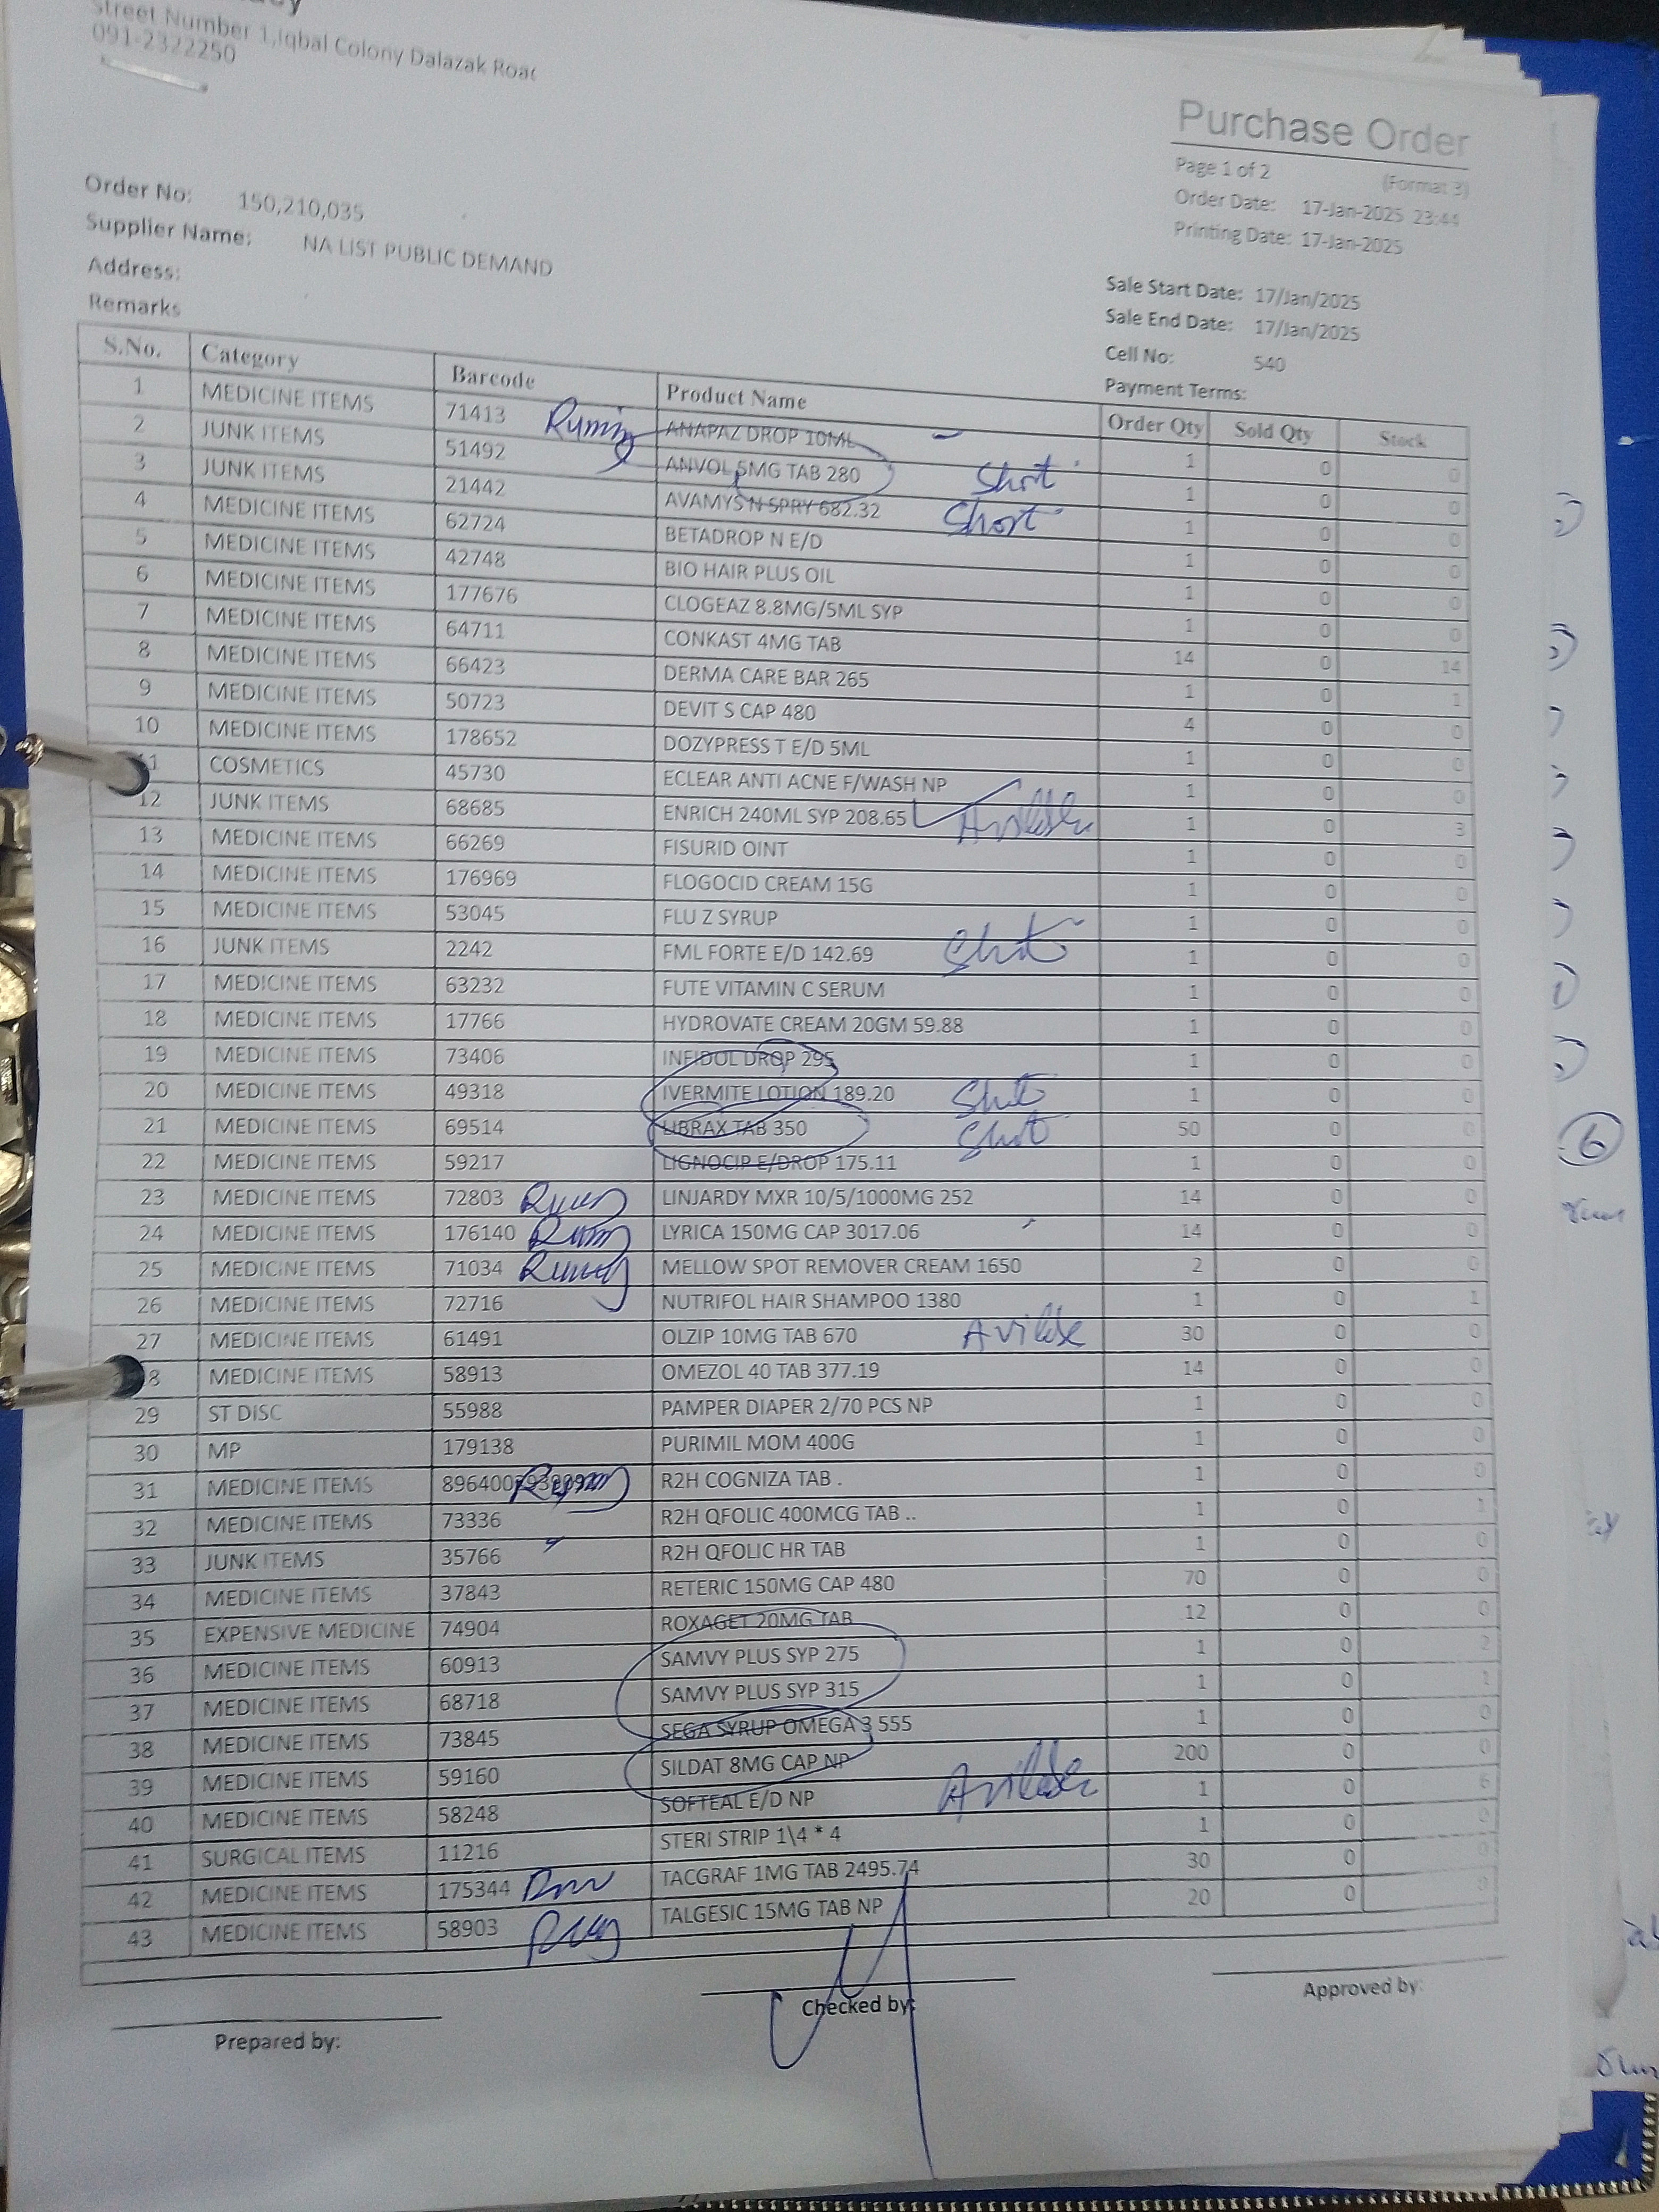 Street Number 1,Iqbal Colony Dalazak Road
091-2322250
Purchase Order
Page 1 of 2 (Format 3)
Order Date: 17-Jan-2025 23:44
Printing Date: 17-Jan-2025
Order No: 150,210,035
Supplier Name: NA LIST PUBLIC DEMAND
Address:
Remarks
Sale Start Date: 17/Jan/2025
Sale End Date: 17/Jan/2025
Cell No: 540
Payment Terms:
S.No. Category Barcode Product Name Order Qty Sold Qty Stock
1 MEDICINE ITEMS 71413 ANAPAZ DROP 10ML 1 0 0
2 JUNK ITEMS 51492 ANVOL 5MG TAB 280 Short 1 0 0
3 JUNK ITEMS 21442 AVAMYS N SPRY 682.32 Short 1 0 0
4 MEDICINE ITEMS 62724 BETADROP N E/D 1 0 0
5 MEDICINE ITEMS 42748 BIO HAIR PLUS OIL 1 0 0
6 MEDICINE ITEMS 177676 CLOGEAZ 8.8MG/5ML SYP 1 0 0
7 MEDICINE ITEMS 64711 CONKAST 4MG TAB 14 0 14
8 MEDICINE ITEMS 66423 DERMA CARE BAR 265 1 0 1
9 MEDICINE ITEMS 50723 DEVIT S CAP 480 4 0 0
10 MEDICINE ITEMS 178652 DOZYPRESS T E/D 5ML 1 0 0
11 COSMETICS 45730 ECLEAR ANTI ACNE F/WASH NP 1 0 0
12 JUNK ITEMS 68685 ENRICH 240ML SYP 208.65 1 0 3
13 MEDICINE ITEMS 66269 FISURID OINT 1 0 0
14 MEDICINE ITEMS 176969 FLOGOCID CREAM 15G 1 0 0
15 MEDICINE ITEMS 53045 FLU Z SYRUP 1 0 0
16 JUNK ITEMS 2242 FML FORTE E/D 142.69 1 0 0
17 MEDICINE ITEMS 63232 FUTE VITAMIN C SERUM 1 0 0
18 MEDICINE ITEMS 17766 HYDROVATE CREAM 20GM 59.88 1 0 0
19 MEDICINE ITEMS 73406 INFIDOL DROP 295 1 0 0
20 MEDICINE ITEMS 49318 IVERMITE LOTION 189.20 1 0 0
21 MEDICINE ITEMS 69514 LIBRAX TAB 350 50 0 0
22 MEDICINE ITEMS 59217 LIGNOCIP E/DROP 175.11 1 0 0
23 MEDICINE ITEMS 72803 LINJARDY MXR 10/5/1000MG 252 14 0 0
24 MEDICINE ITEMS 176140 LYRICA 150MG CAP 3017.06 14 0 0
25 MEDICINE ITEMS 71034 MELLOW SPOT REMOVER CREAM 1650 2 0 0
26 MEDICINE ITEMS 72716 NUTRIFOL HAIR SHAMPOO 1380 1 0 1
27 MEDICINE ITEMS 61491 OLZIP 10MG TAB 670 30 0 0
8 MEDICINE ITEMS 58913 OMEZOL 40 TAB 377.19 14 0 0
29 ST DISC 55988 PAMPER DIAPER 2/70 PCS NP 1 0 0
30 MP 179138 PURIMIL MOM 400G 1 0 0
31 MEDICINE ITEMS R2H COGNIZA TAB . 1 0 0
32 MEDICINE ITEMS 73336 R2H QFOLIC 400MCG TAB .. 1 0 1
33 JUNK ITEMS 35766 R2H QFOLIC HR TAB 1 0 0
34 MEDICINE ITEMS 37843 RETERIC 150MG CAP 480 70 0 0
35 EXPENSIVE MEDICINE 74904 ROXAGET 20MG TAB 12 0 0
36 MEDICINE ITEMS 60913 SAMVY PLUS SYP 275 1 0 2
37 MEDICINE ITEMS 68718 SAMVY PLUS SYP 315 1 0 1
38 MEDICINE ITEMS 73845 SEGA SYRUP OMEGA 3 555 1 0 0
39 MEDICINE ITEMS 59160 SILDAT 8MG CAP NP 200 0 0
40 MEDICINE ITEMS 58248 SOFTEAL E/D NP 1 0 6
41 SURGICAL ITEMS 11216 STERI STRIP 1\4 * 4 1 0 0
42 MEDICINE ITEMS 175344 TACGRAF 1MG TAB 2495.74 30 0 0
43 MEDICINE ITEMS 58903 TALGESIC 15MG TAB NP 20 0 0
6
Prepared by:
Checked by:
Approved by: